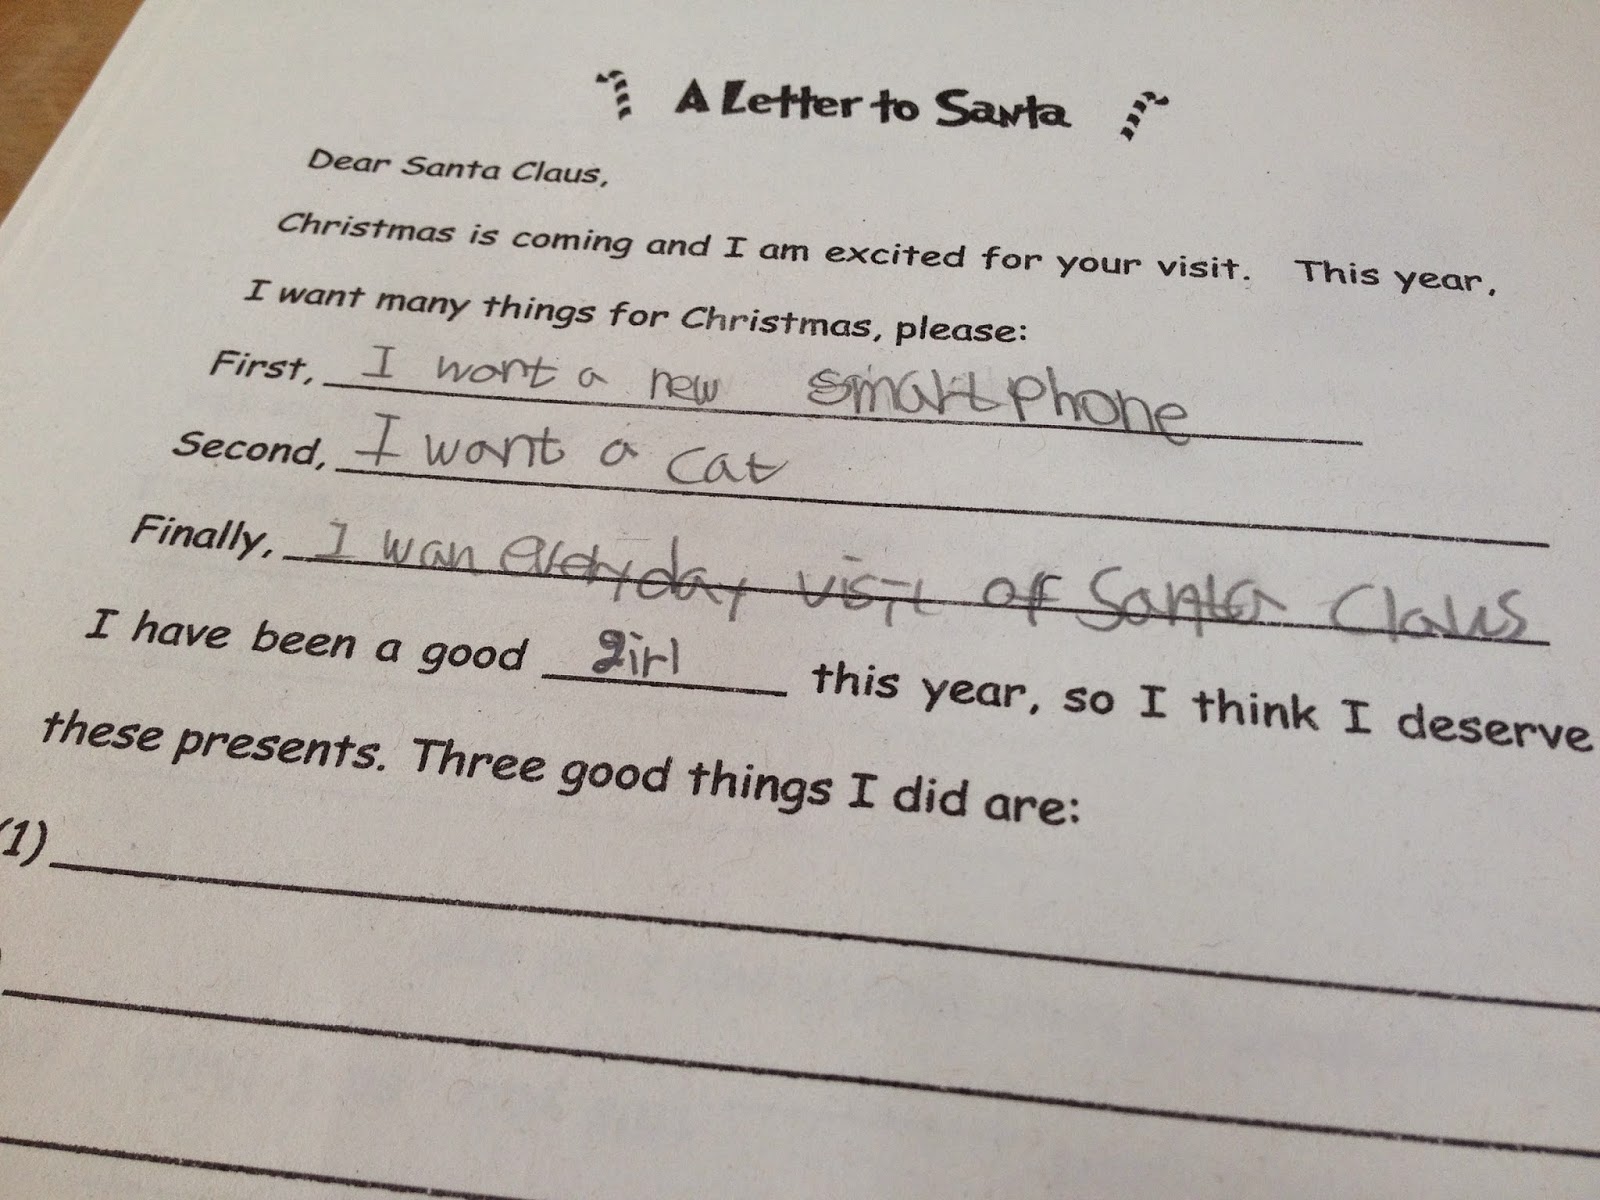 A Letter to Santa
Dear Santa Claus,
Christmas is coming and I am excited for your visit. This year,
I want many things for Christmas, please:
First, I want a new smartphone
Second, I want a cat
Finally, I wan everyday visit of Santa Claus
I have been a good girl this year, so I think I deserve
these presents. Three good things I did are:
(1)